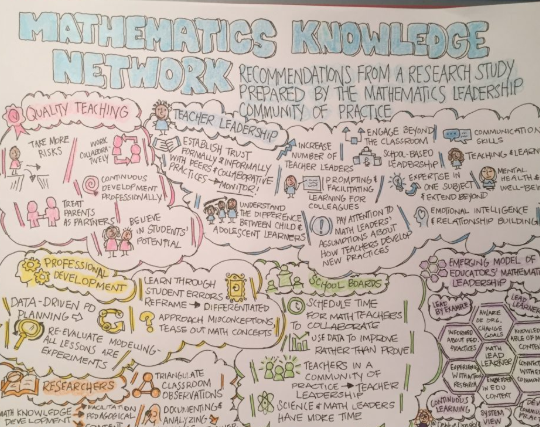 MATHEMATICS KNOWLEDGE
NETWORK
RECOMMENDATIONS FROM A RESEARCH STUDY
PREPARED BY THE MATHEMATICS LEADERSHIP
COMMUNITY OF PRACTICE
QUALITY TEACHING
TAKE MORE
RISKS
WORK
COLLABORA-
TIVELY
CONTINUOUS
DEVELOPMENT
PROFESSIONALLY
TREAT
PARENTS
AS PARTNERS
BELIEVE
IN STUDENTS'
POTENTIAL
TEACHER LEADERSHIP
ESTABLISH TRUST
FORMALLY & INFORMALLY
WITH PEERS & COLLABORATIVE
PRACTICES → MONITOR!
UNDERSTAND
THE DIFFERENCE
BETWEEN CHILD &
ADOLESCENT LEARNERS
INCREASE
NUMBER OF
TEACHER LEADERS
PROMPTING &
FACILITATING
LEARNING FOR
COLLEAGUES
PAY ATTENTION TO
MATH LEADERS'
ASSUMPTIONS ABOUT
HOW TEACHERS DEVELOP
NEW PRACTICES
ENGAGE BEYOND
THE CLASSROOM
SCHOOL-BASED
LEADERSHIP
EXPERTISE IN
ONE SUBJECT
& EXTEND BEYOND
COMMUNICATION
SKILLS
TEACHING & LEARN
MENTAL
HEALTH &
WELL-BE
EMOTIONAL INTELLIGENCE
& RELATIONSHIP BUILDING
PROFESSIONAL
DEVELOPMENT
DATA-DRIVEN PD
PLANNING →
RE-EVALUATE MODELING-
ALL LESSONS ARE
EXPERIMENTS
LEARN THROUGH
STUDENT ERRORS
REFRAME → DIFFERENTIATED
APPROACH MISCONCEPTIONS
TEASE OUT MATH CONCEPTS
SCHOOL BOARDS
SCHEDULE TIME
FOR MATH TEACHERS
TO COLLABORATE
USE DATA TO IMPROVE
RATHER THAN PROVE
TEACHERS IN A
COMMUNITY OF
PRACTICE → TEACHER
LEADERSHIP
SCIENCE & MATH LEADERS
HAVE MORE TIME
EMERGING MODEL OF
EDUCATORS' MATHEMATICS
LEADERSHIP
LEAD BY EXAMPLE
LEAD LEARNERS
AWARE
OF ORG.
CHANGE
GOALS
INFORMED
ABOUT PED
PRACTICES
MATH
LEAD
LEARNER
CONTINUOUS
LEARNING
SYSTEM
VIEW
RESEARCHERS
MATH KNOWLEDGE
DEVELOPMENT
FACILITATION
PEDAGOGICAL
TRIANGULATE
CLASSROOM
OBSERVATIONS
DOCUMENTING &
ANALYZING